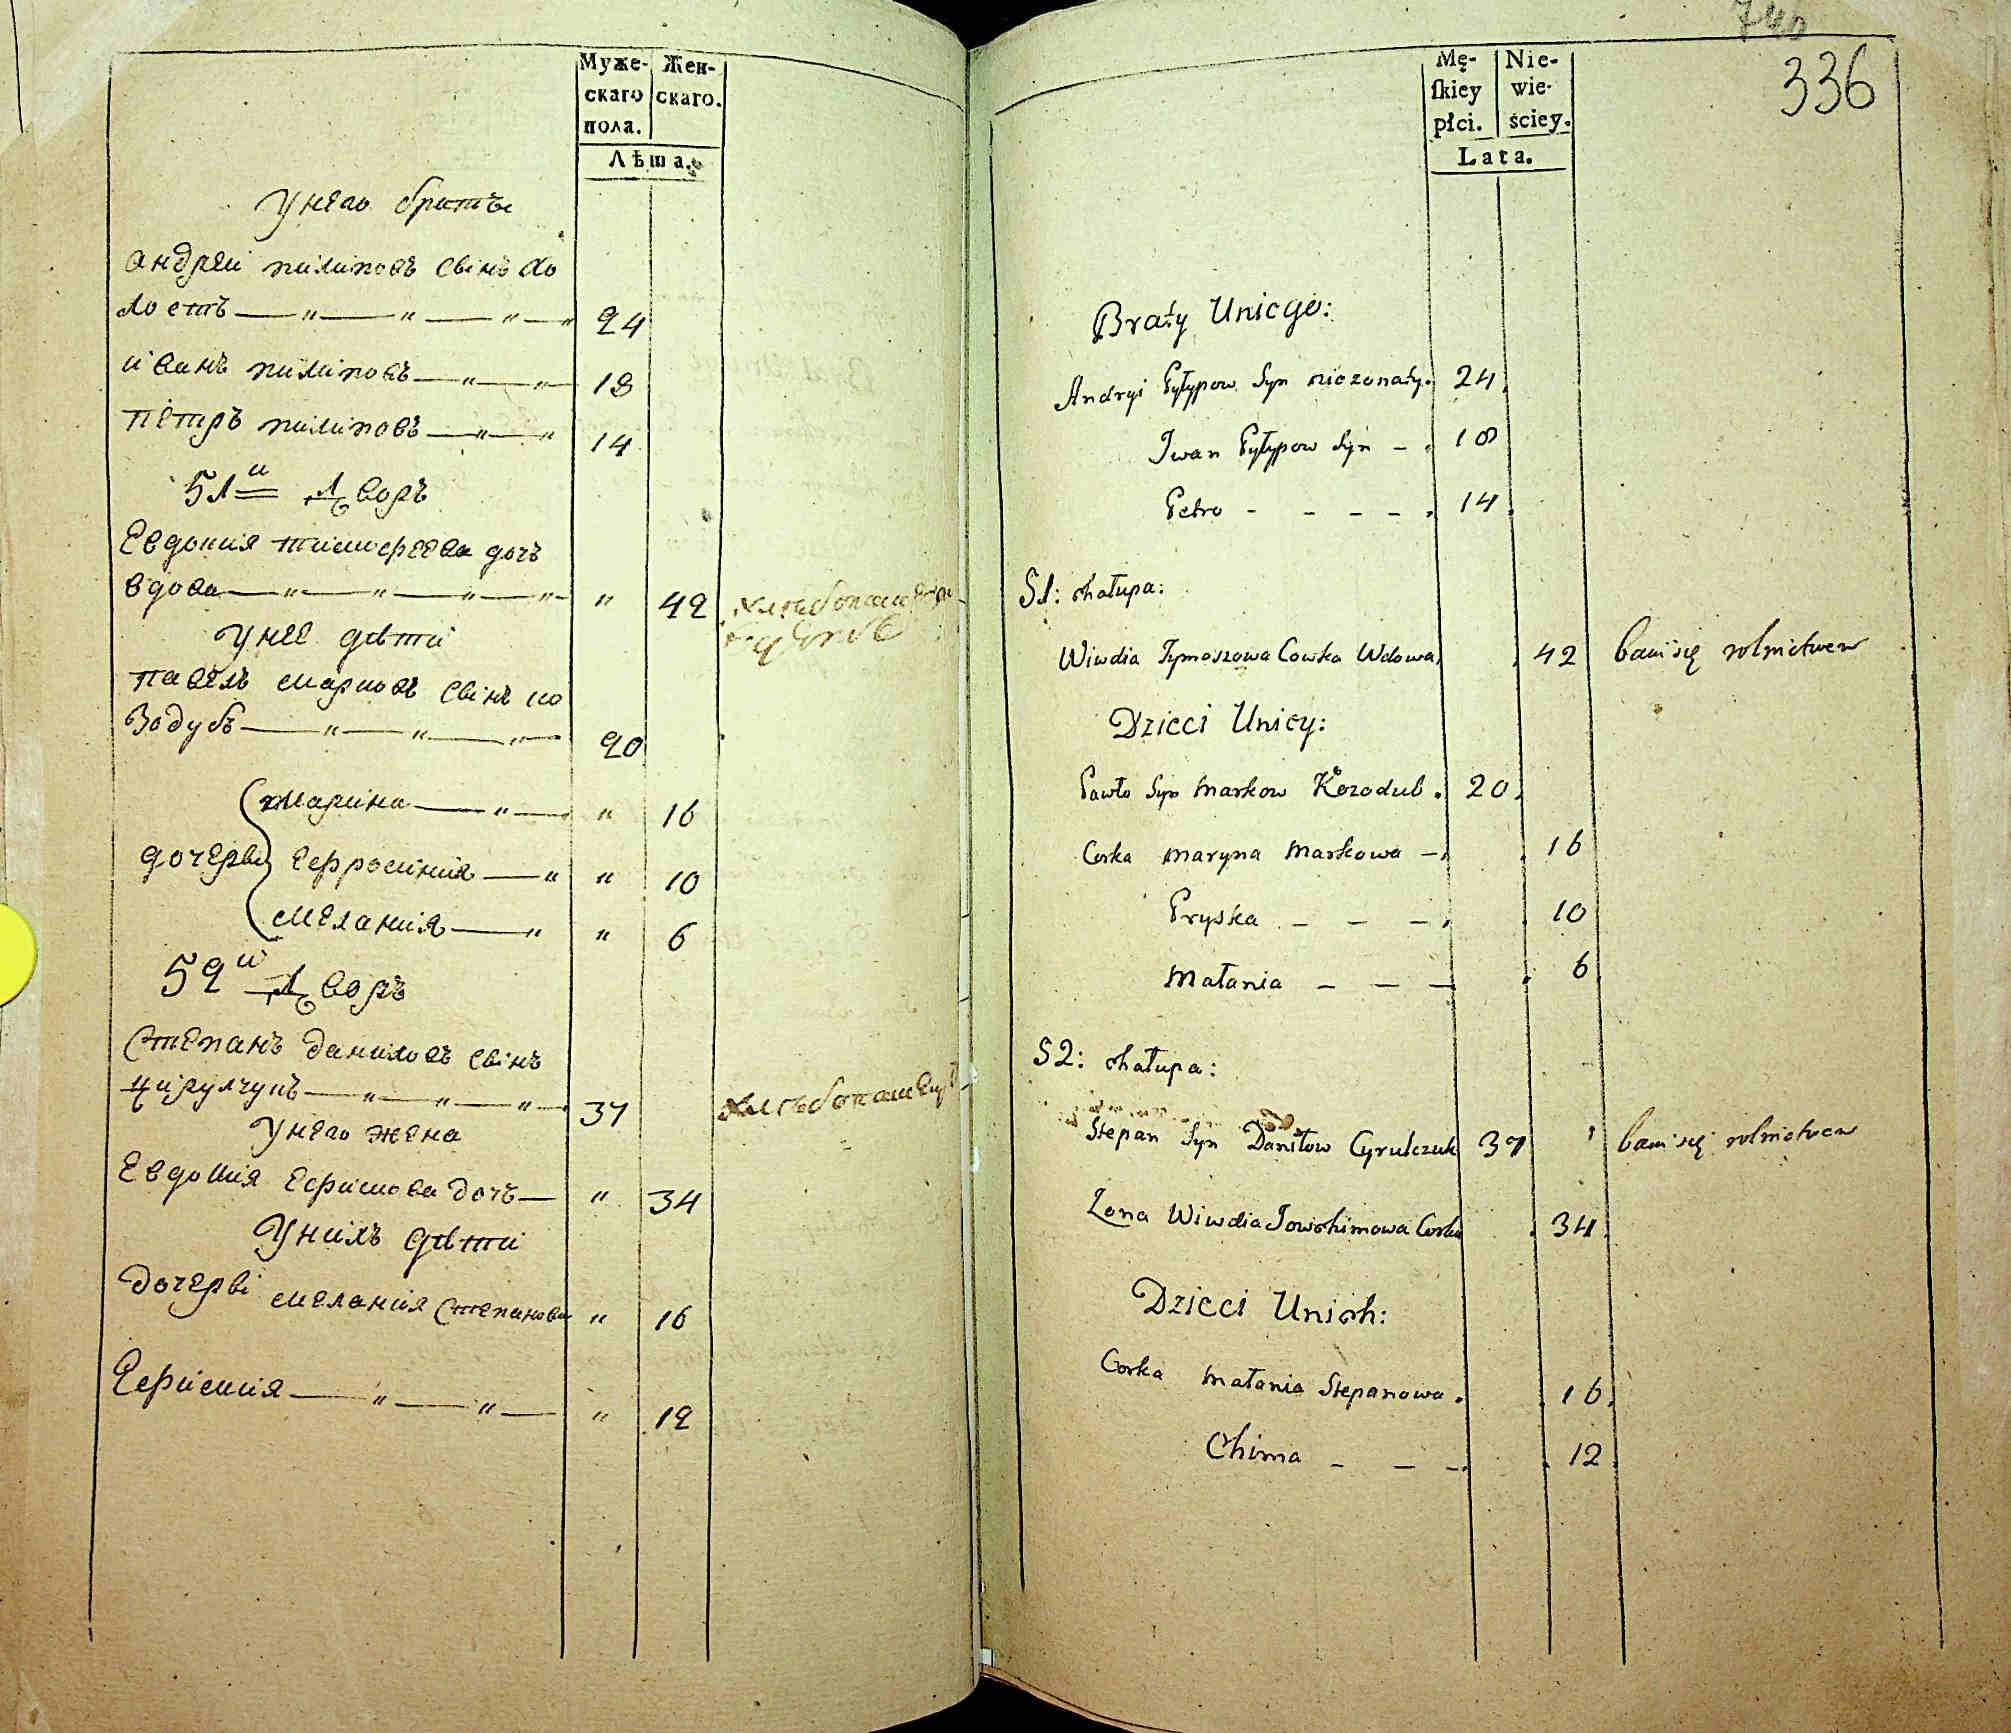 Муже-
скаго
пола.
Жен-
скаго.
Лѣта.
У него братъе
андреи пилиповъ Свінъ хо
лостъ — " — " — " — " 24
иванъ пилиповъ — " — " 18
петръ пилиповъ — " — " 14
51й Дворъ
Евдокия тимофеева дочъ
вдова — " — " — " — " " 42 хлѣбопаш
У нее дѣти
павелъ марковъ Свінъ ко
Зодубъ — " — " — " 20
марина — " — " 16
дочерві ефросиния — " " 10
мелания — " " 6
52й Дворъ
Степанъ даниловъ Свінъ
цирулчукъ — " — " — " 37 хлѣбопашец
У него жена
Евдокия ефимова дочъ — " 34
У нихъ дѣти
дочерві мелания степанова " 16
Ефимия — " — " — " 12
740
336
Mę-
ſkiey
płci.
Nie-
wie-
ściey.
Lata.
Braty Uniego:
Andryi Pyłypow Syn niezonaty. 24.
Iwan Pyłypow Syn - . 18
Petro - - - - . 14.
51: chałupa:
Wiwdia Tymoszowa Cowka Wdowa. . 42 bawi się rolnictwem
Dzieci Uniey:
Pawło Syn Markow Kozodub. 20.
Corka Maryna Markowa - . . 16
Pryska - - - . . 10
Małania - - - . 6
52: chałupa:
Stepan Syn Daniłow Cyrulczuk 37 bawi się rolnictwem
Zona Wiwdia Jowchimowa Corka . 34.
Dzieci Unich:
Corka Małania Stepanowa. . 16.
Chima - - - . . 12.